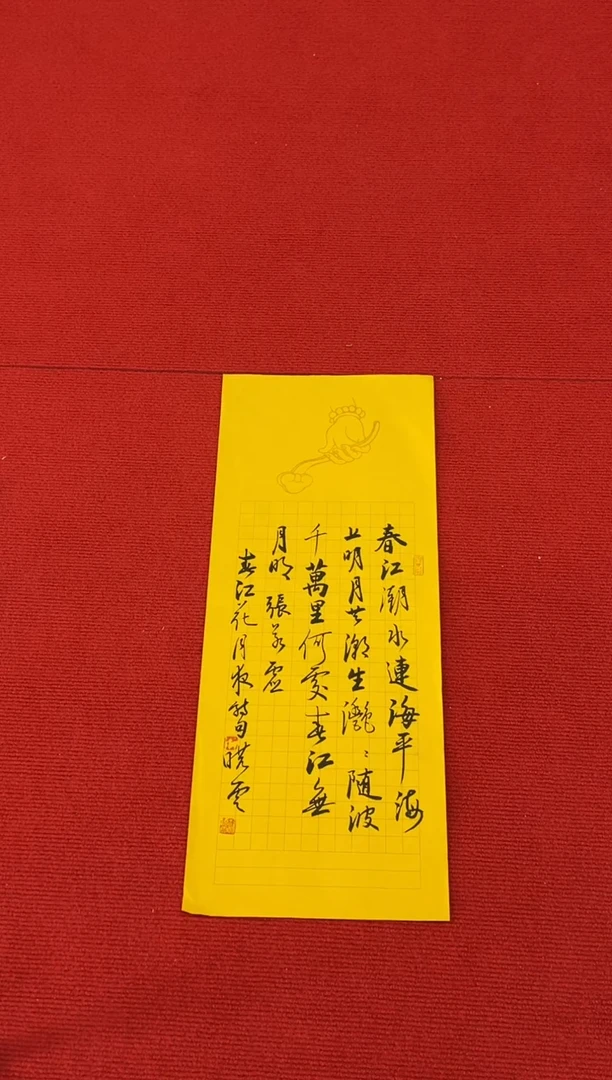 春江潮水連海平海
上明月共潮生灧〻随波
千萬里何處春江無
月明 張若虛
春江花月夜 曉雲